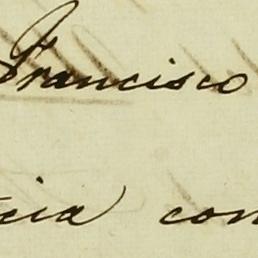 Francisco
cia con